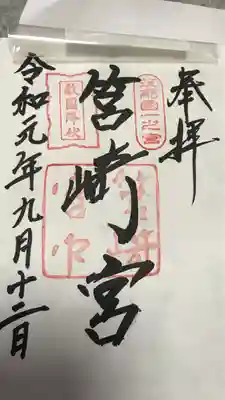 奉拝
筑前國一之宮
敵国降伏
筥崎宮
筥崎宮印
令和元年九月十二日